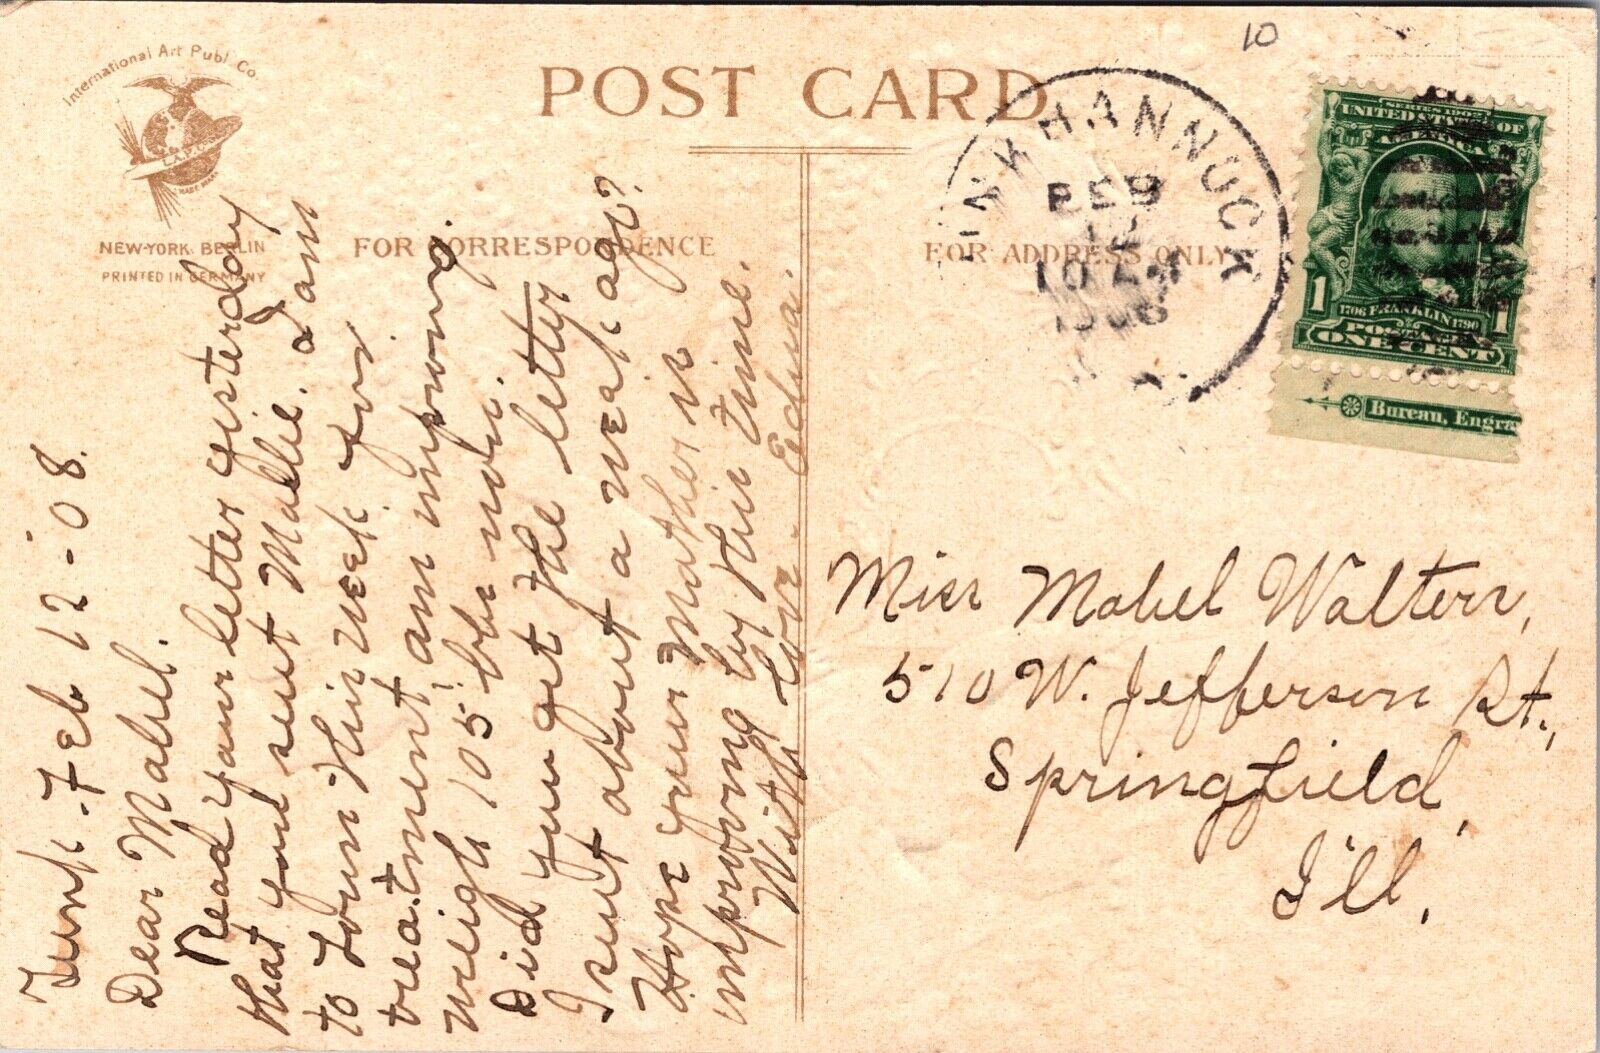 International Art Publ. Co.
NEW-YORK. BERLIN
PRINTED IN GERMANY
POST CARD
FOR CORRESPONDENCE
FOR ADDRESS ONLY
10
UNKHANNOCK
FEB
12
10 AM
1908
SERIES 1902
UNITED STATES OF
AMERICA
1706 FRANKLIN 1790
1 POSTAGE 1
ONE CENT
Bureau, Engra
Tunk. Feb 12-'08.
Dear Mabel.
Read your letter yisterday
that you sent Mallie. I am
to Town this week for
treatment, am improving.
weigh 105 lbs now.
Did you get the letter
I sent about a week ago?
Hope your Mother is
improving by this time.
With love - Edna.
Miss Mabel Walters,
510 W. Jefferson St.,
Springfield,
Ill,